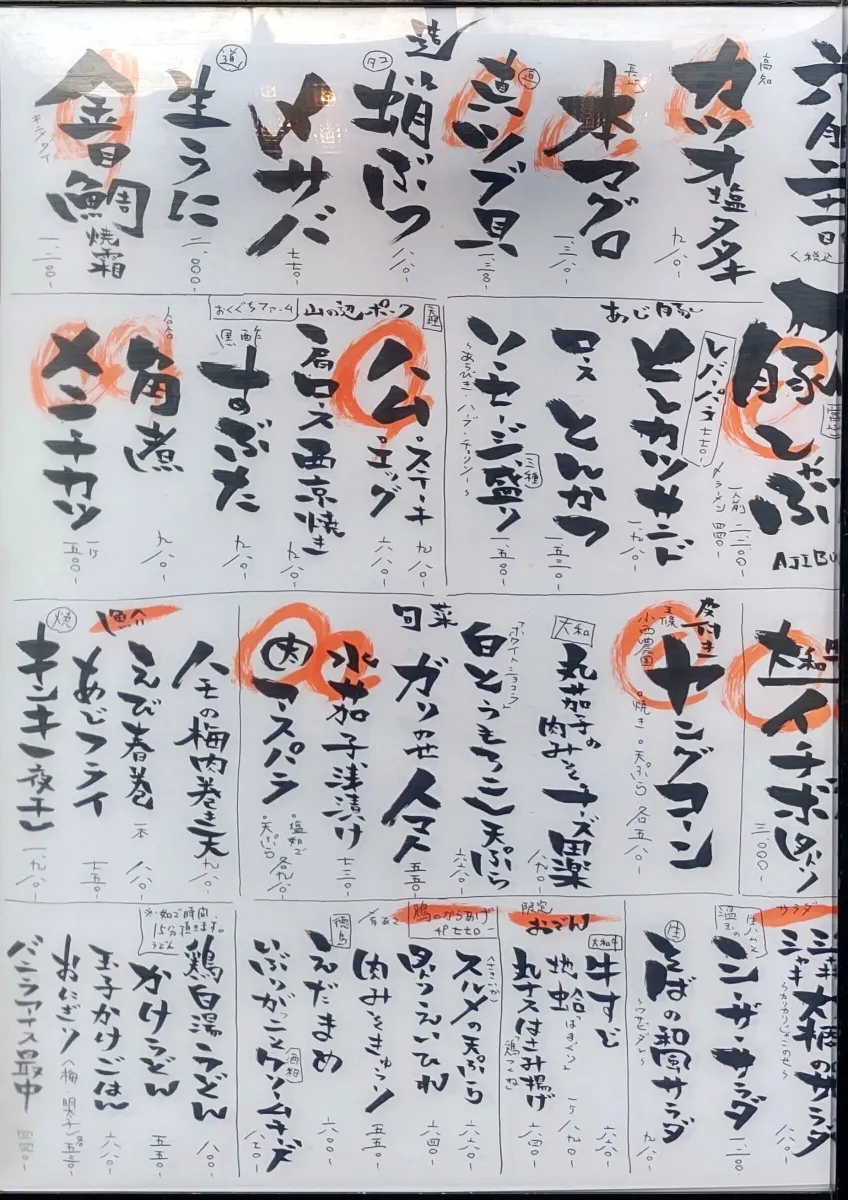 六月二十二日
〈税込
高知
カツオ塩タタキ
九八〇-
長崎
本マグロ
一、三八〇-
道
真ツブ貝
造
タコ
蛸ぶつ
八八〇-
〆サバ
七七〇-
道
生うに
二、〇〇〇-
金目鯛焼霜
キンメダイ
豚しゃぶ
AJIBU
一人前
〆ラーメン 四四〇-
レバーパテ 七七〇-
あじ豚
ヒレカツサンド
一、九八〇-
ロースとんかつ
ソーセージ盛り
三種
〜あらびき・ハーブ・チョリソー〜
一、五〇〇-
おくぐちファーム
山の辺ポーク
天理
ハム
。ステーキ 九八〇-
。エッグ 六八〇-
肩ロース西京焼き
九八〇-
黒酢
すのぶた
九八〇-
角煮
九八〇-
メンチカツ
五〇〇-
大和牛
イチボ炙り
三、〇〇〇-
皮付き
ヤングコーン
小西農園
。焼き 。天ぷら 各五八〇-
大和
丸茄子の肉みそチーズ田楽
八八〇-
「ホワイトショコラ」
白とうもろこし天ぷら
六八〇-
旬菜
ガリのせトマト
五五〇-
水茄子浅漬け
七三〇-
肉アスパラ
。塩
。天ぷら 各九八〇-
ハモの梅肉巻き天
九八〇-
魚介
えび春巻
一本 八八〇-
あじフライ
七五〇-
焼
キンキ一夜干し
一、九八〇-
サラダ
シャキシャキ大根のサラダ
〜カリカリじゃこのせ〜
八八〇-
生ハムと温玉の
シーザーサラダ
一、一〇〇
生
そばの和風サラダ
〜ワサビダレ〜
九八〇-
限定
おでん
大和牛
牛すじ
六六〇-
地蛤
「はまぐり」
丸ナスはさみ揚げ
「鶏つくね」
六四〇-
鶏のからあげ
4P 七七〇-
スルメの天ぷら
六六〇-
炙りえいひれ
六四〇-
肉みそきゅうり
五五〇-
徳島
えだまめ
六〇〇-
いぶりがっことクリームチーズ
酒粕
鶏白湯うどん
八八〇-
かけうどん
五五〇-
玉子かけごはん
六六〇-
おにぎり〈梅・明太子〉
バニラアイス最中
四四〇-